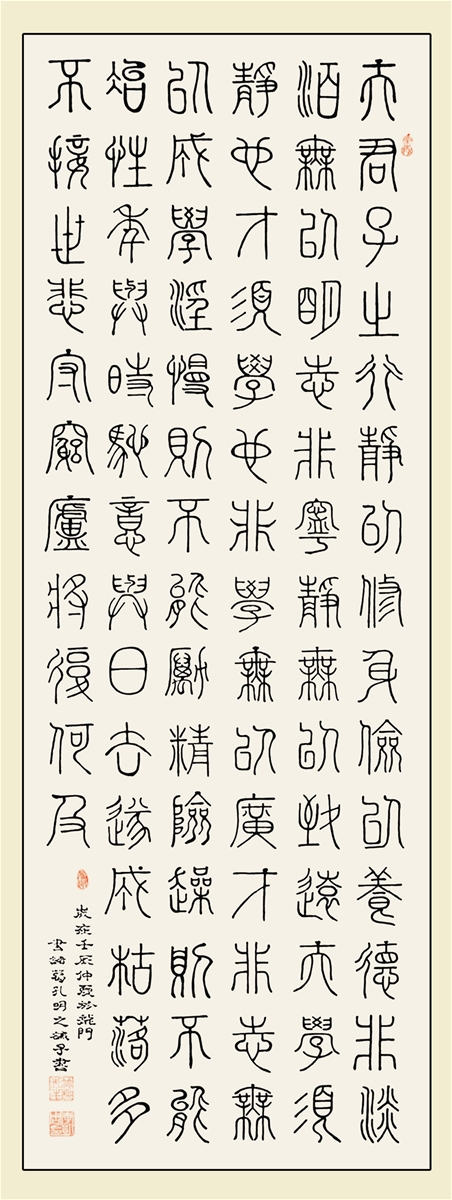 夫君子之行靜以修身儉以養德非淡
泊無以明志非寧靜無以致遠夫學須
靜也才須學也非學無以廣才非志無
以成學淫慢則不能勵精險躁則不能
冶性年與時馳意與日去遂成枯落多
不接世悲守窮廬將復何及
歲在壬辰仲夏於龍門
書諸葛孔明之誡子書